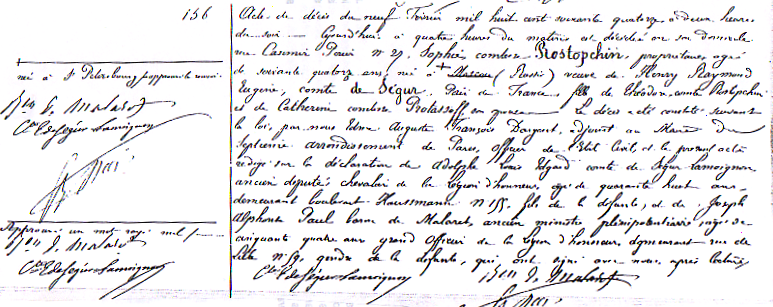 156
Acte de décès du neuf Février mil huit cent soixante quatorze à deux heures
du soir — Aujourd'hui à quatre heures du matin est décédée en son domicile
rue Casimir Périer n° 27, Sophie comtesse Rostopchin, propriétaire, âgée
de soixante quatorze ans, née à + Moscou (Russie) veuve de Henry Raymond
Eugène, comte de Ségur, Pair de France, fille de Théodore comte Rostopchin
et de Catherine comtesse Protassoff Le décès a été constaté suivant
la loi, par nous Edme Auguste François Dargent, adjoint au Maire du
Septième arrondissement de Paris, officier de l'état civil, et le présent acte
rédigé sur la déclaration de Adolphe Louis Edgard comte de Ségur Lamoignon
ancien député, chevalier de la Légion d'honneur, âgé de quarante huit ans,
demeurant boulevart Haussmann n° 155, fils de la défunte, et de Joseph
Alphonse Paul baron de Malaret, ancien ministre plénipotentiaire, âgé de
cinquante quatre ans grand officier de la Légion d'honneur, demeurant rue de
Lille n° 59, gendre de la défunte, qui ont signé avec nous, après lecture
Cte E de Ségur Lamoignon Bon P. Malaret
née à St Pétersbourg
Bon P. Malaret
Cte E de Ségur Lamoignon
Approuvé un mot rayé nul
Bon P. Malaret
Cte E de Ségur Lamoignon